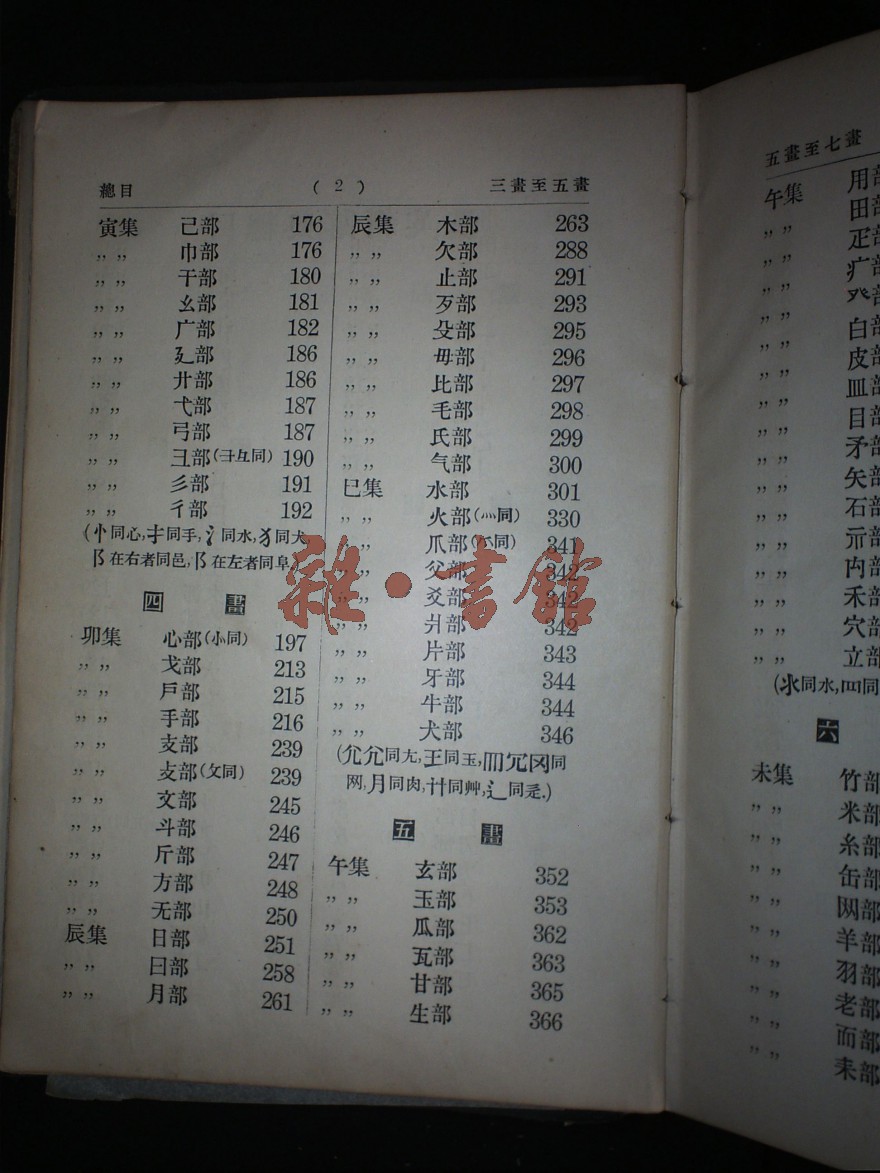 總目 (2) 三畫至五畫
寅集 己部 176
〃〃 巾部 176
〃〃 干部 180
〃〃 幺部 181
〃〃 广部 182
〃〃 廴部 186
〃〃 廾部 186
〃〃 弋部 187
〃〃 弓部 187
〃〃 彐部(彑同) 190
〃〃 彡部 191
〃〃 彳部 192
(忄同心,扌同手,氵同水,犭同犬,
阝在右者同邑,阝在左者同阜.)
四畫
卯集 心部(㣺同) 197
〃〃 戈部 213
〃〃 戶部 215
〃〃 手部 216
〃〃 支部 239
〃〃 攴部(攵同) 239
〃〃 文部 245
〃〃 斗部 246
〃〃 斤部 247
〃〃 方部 248
〃〃 无部 250
辰集 日部 251
〃〃 曰部 258
〃〃 月部 261
辰集 木部 263
〃〃 欠部 288
〃〃 止部 291
〃〃 歹部 293
〃〃 殳部 295
〃〃 毋部 296
〃〃 比部 297
〃〃 毛部 298
〃〃 氏部 299
〃〃 气部 300
巳集 水部 301
〃〃 火部(灬同) 330
〃〃 爪部(爫同) 341
〃〃 父部 342
〃〃 爻部 342
〃〃 爿部 342
〃〃 片部 343
〃〃 牙部 344
〃〃 牛部 344
〃〃 犬部 346
(尣尢同尢,王同玉,罒冗冈同
网,月同肉,艹同艸,辶同辵.)
五畫
午集 玄部 352
〃〃 玉部 353
〃〃 瓜部 362
〃〃 瓦部 363
〃〃 甘部 365
〃〃 生部 366
五畫至七畫
午集 用部
〃〃 田部
〃〃 疋部
〃〃 疒部
〃〃 癶部
〃〃 白部
〃〃 皮部
〃〃 皿部
〃〃 目部
〃〃 矛部
〃〃 矢部
〃〃 石部
〃〃 示部
〃〃 禸部
〃〃 禾部
〃〃 穴部
〃〃 立部
(氺同水,罒同
六
未集 竹部
〃〃 米部
〃〃 糸部
〃〃 缶部
〃〃 网部
〃〃 羊部
〃〃 羽部
〃〃 老部
〃〃 而部
〃〃 耒部
雜·書館